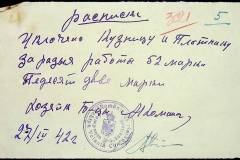 расписка
321 5
Уплочено Кузницу и Плотнику
За разыя работы 52 марки
Педесят две марки
Хозяйка База
27/IV 42 г.